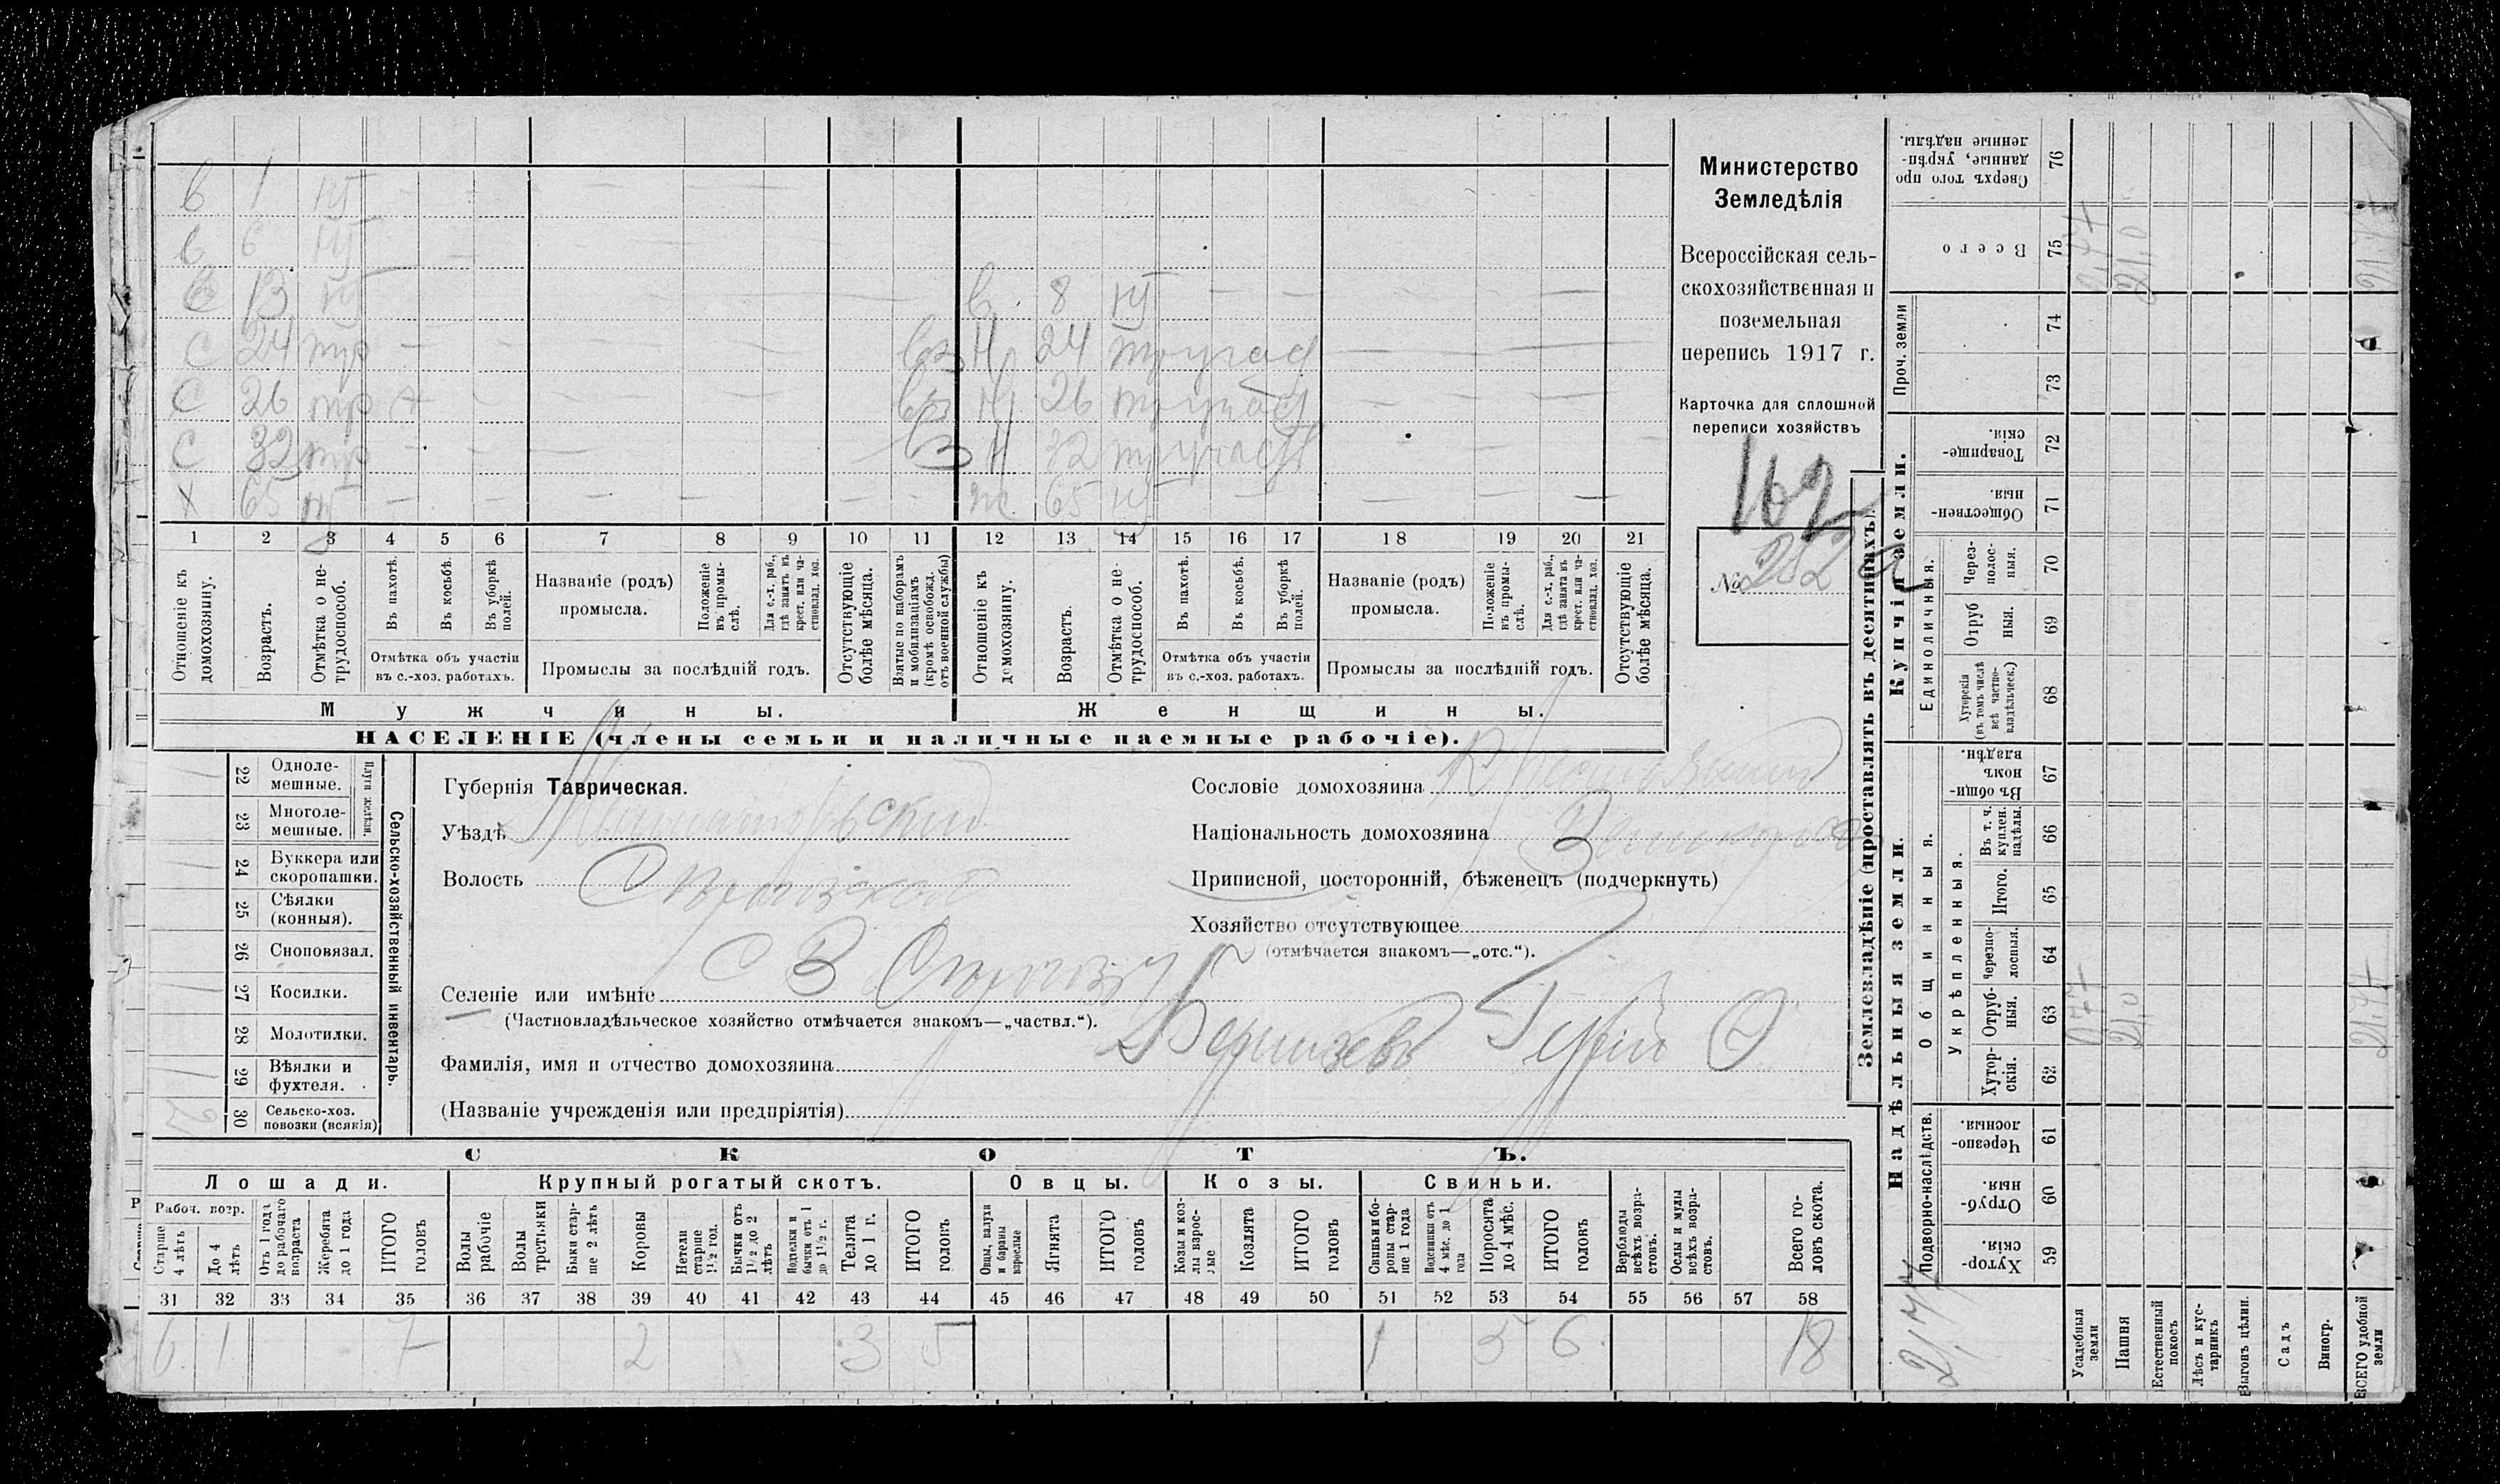 в 1 нт
в 6 нт
в 13 нт в 8 нт
с 24 тр вз н 24 тр
с 26 тр вз н 26 тр
с 32 тр вз н 32 тр
х 65 нт ж 65 нт
1 2 3 4 5 6 7 8 9 10 11 12 13 14 15 16 17 18 19 20 21
Отношеніе къ домохозяину.
Возрастъ.
Отмѣтка о не-трудоспособ.
Въ пахотѣ.
Въ косьбѣ.
Въ уборкѣ полей.
Отмѣтка объ участіи
въ с.-хоз. работахъ.
Названіе (родъ)
промысла.
Положеніе въ промы-слѣ.
Для с.-х. раб., гдѣ занятъ въ крест. или ча-стновлад. хоз.
Промыслы за послѣдній годъ.
Отсутствующіе болѣе мѣсяца.
Взятые по наборамъ и мобилизаціямъ (кромѣ освобожд. отъ военной службы)
Отношеніе къ домохозяину.
Возрастъ.
Отмѣтка о не-трудоспособ.
Въ пахотѣ.
Въ косьбѣ.
Въ уборкѣ полей.
Отмѣтка объ участіи
въ с.-хоз. работахъ.
Названіе (родъ)
промысла.
Положеніе въ промы-слѣ.
Для с.-х. раб., гдѣ занята въ крест. или ча-стновлад. хоз.
Промыслы за послѣдній годъ.
Отсутствующіе болѣе мѣсяца.
Мужчины.
Женщины.
НАСЕЛЕНІЕ (члены семьи и наличные наемные рабочіе).
Министерство
Земледѣлія
Всероссійская сель-
скохозяйственная и
поземельная
перепись 1917 г.
Карточка для сплошной
переписи хозяйствъ
162
№ 252
22 Одноле-мешные.
23 Многоле-мешные.
Плуги желѣзн.
24 Буккера или скоропашки.
25 Сѣялки (конныя).
26 Сноповязал.
27 Косилки.
28 Молотилки.
29 Вѣялки и фухтеля.
30 Сельско-хоз. повозки (всякія)
Сельско-хозяйственный инвентарь.
Губернія Таврическая.
Уѣздъ
Волость
Селеніе или имѣніе
(Частновладѣльческое хозяйство отмѣчается знакомъ—„частвл.“).
Фамилія, имя и отчество домохозяина
(Названіе учрежденія или предпріятія)
Сословіе домохозяина
Національность домохозяина
Приписной, посторонній, бѣженецъ (подчеркнуть)
Хозяйство отсутствующее
(отмѣчается знакомъ—„отс.“).
СКОТЪ.
Лошади. Крупный рогатый скотъ. Овцы. Козы. Свиньи.
Рабоч. возр.
Старше 4 лѣтъ
До 4 лѣтъ
Отъ 1 года до рабочаго возраста
Жеребята до 1 года
ИТОГО головъ
Волы рабочіе
Волы третьяки
Быки стар-ше 2 лѣтъ
Коровы
Нетели старше 1½ год.
Бычки отъ 1½ до 2 лѣтъ
Подтелки и бычки отъ 1 до 1½ г.
Телята до 1 г.
ИТОГО головъ
Овцы, валухи и бараны взрослые
Ягнята
ИТОГО головъ
Козы и коз-лы взрос-лые
Козлята
ИТОГО головъ
Свиньи и бо-ровы стар-ше 1 года
Подсвинки отъ 4 мѣс. до 1 года
Поросята до 4 мѣс.
ИТОГО головъ
Верблюды всѣхъ возра-стовъ.
Ослы и мулы всѣхъ возра-стовъ.
Всего го-ловъ скота.
31 32 33 34 35 36 37 38 39 40 41 42 43 44 45 46 47 48 49 50 51 52 53 54 55 56 57 58
6 1 7 2 3 5 1 5 6 18
Землевладѣніе (проставлять въ десятинахъ).
Надѣльныя земли.
Купчія земли.
Проч. земли
Подворно-наслѣдств.
Общинныя.
Укрѣпленныя.
Единоличныя.
Хутор-скія. 59
Отруб-ныя. 60
Черезпо-лосныя. 61
Хутор-скія. 62
Отруб-ныя. 63
Черезпо-лосныя. 64
Итого. 65
Въ т. ч. куплен. надѣлы 66
Въ общи-номъ владѣн. 67
Хуторскія (въ томъ числѣ всѣ частно-владѣльческ.) 68
Отруб ныя. 69
Через-полос-ныя. 70
Обществен-ныя. 71
Товарище-скія. 72
73
74
Всего 75
Сверхъ того про данные, укрѣп-ленные надѣлы. 76
Усадебныя земли
Пашня
Естественный покосъ
Лѣсъ и кус-тарникъ
Выгонъ цѣлин.
Садъ
Виногр.
ВСЕГО удобной земли
21,0
21,0